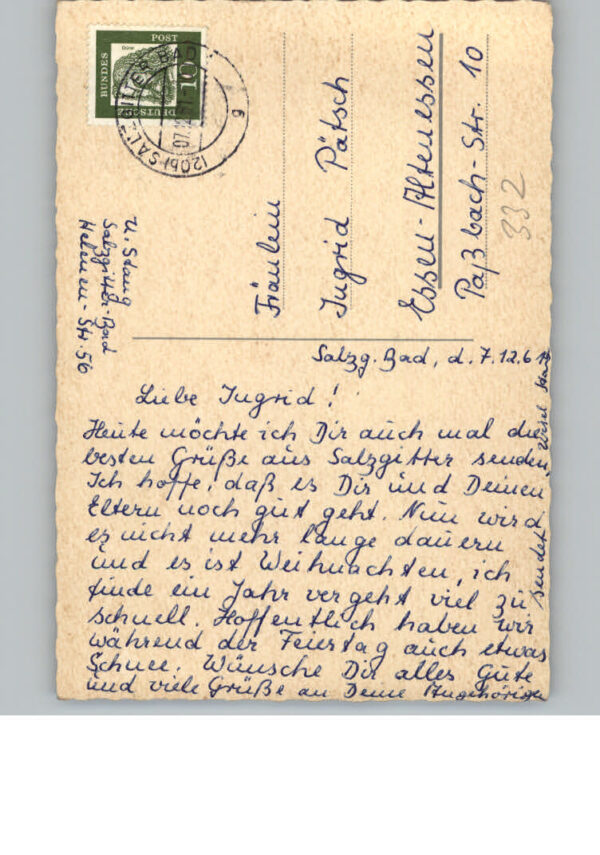 DEUTSCHE
BUNDES
POST
10
(20b) SALZGITTER-BAD
07.12.61
6
Fräulein
Ingrid Pätsch
Essen-Altenessen
Paßbach-Str. 10
332
U. Stang
Salzgitter-Bad
Helenen-Str. 56
Salzg. Bad, d. 7.12.61
Liebe Ingrid!
Heute möchte ich Dir auch mal die
besten Grüße aus Salzgitter senden,
Ich hoffe, daß es Dir und Deinen
Eltern noch gut geht. Nun wird
es nicht mehr lange dauern
und es ist Weihnachten, ich
finde ein Jahr vergeht viel zu
schnell. Hoffentlich haben wir
während der Feiertag auch etwas
Schnee. Wünsche Dir alles Gute
und viele Grüße an Deine Angehörigen
sendet